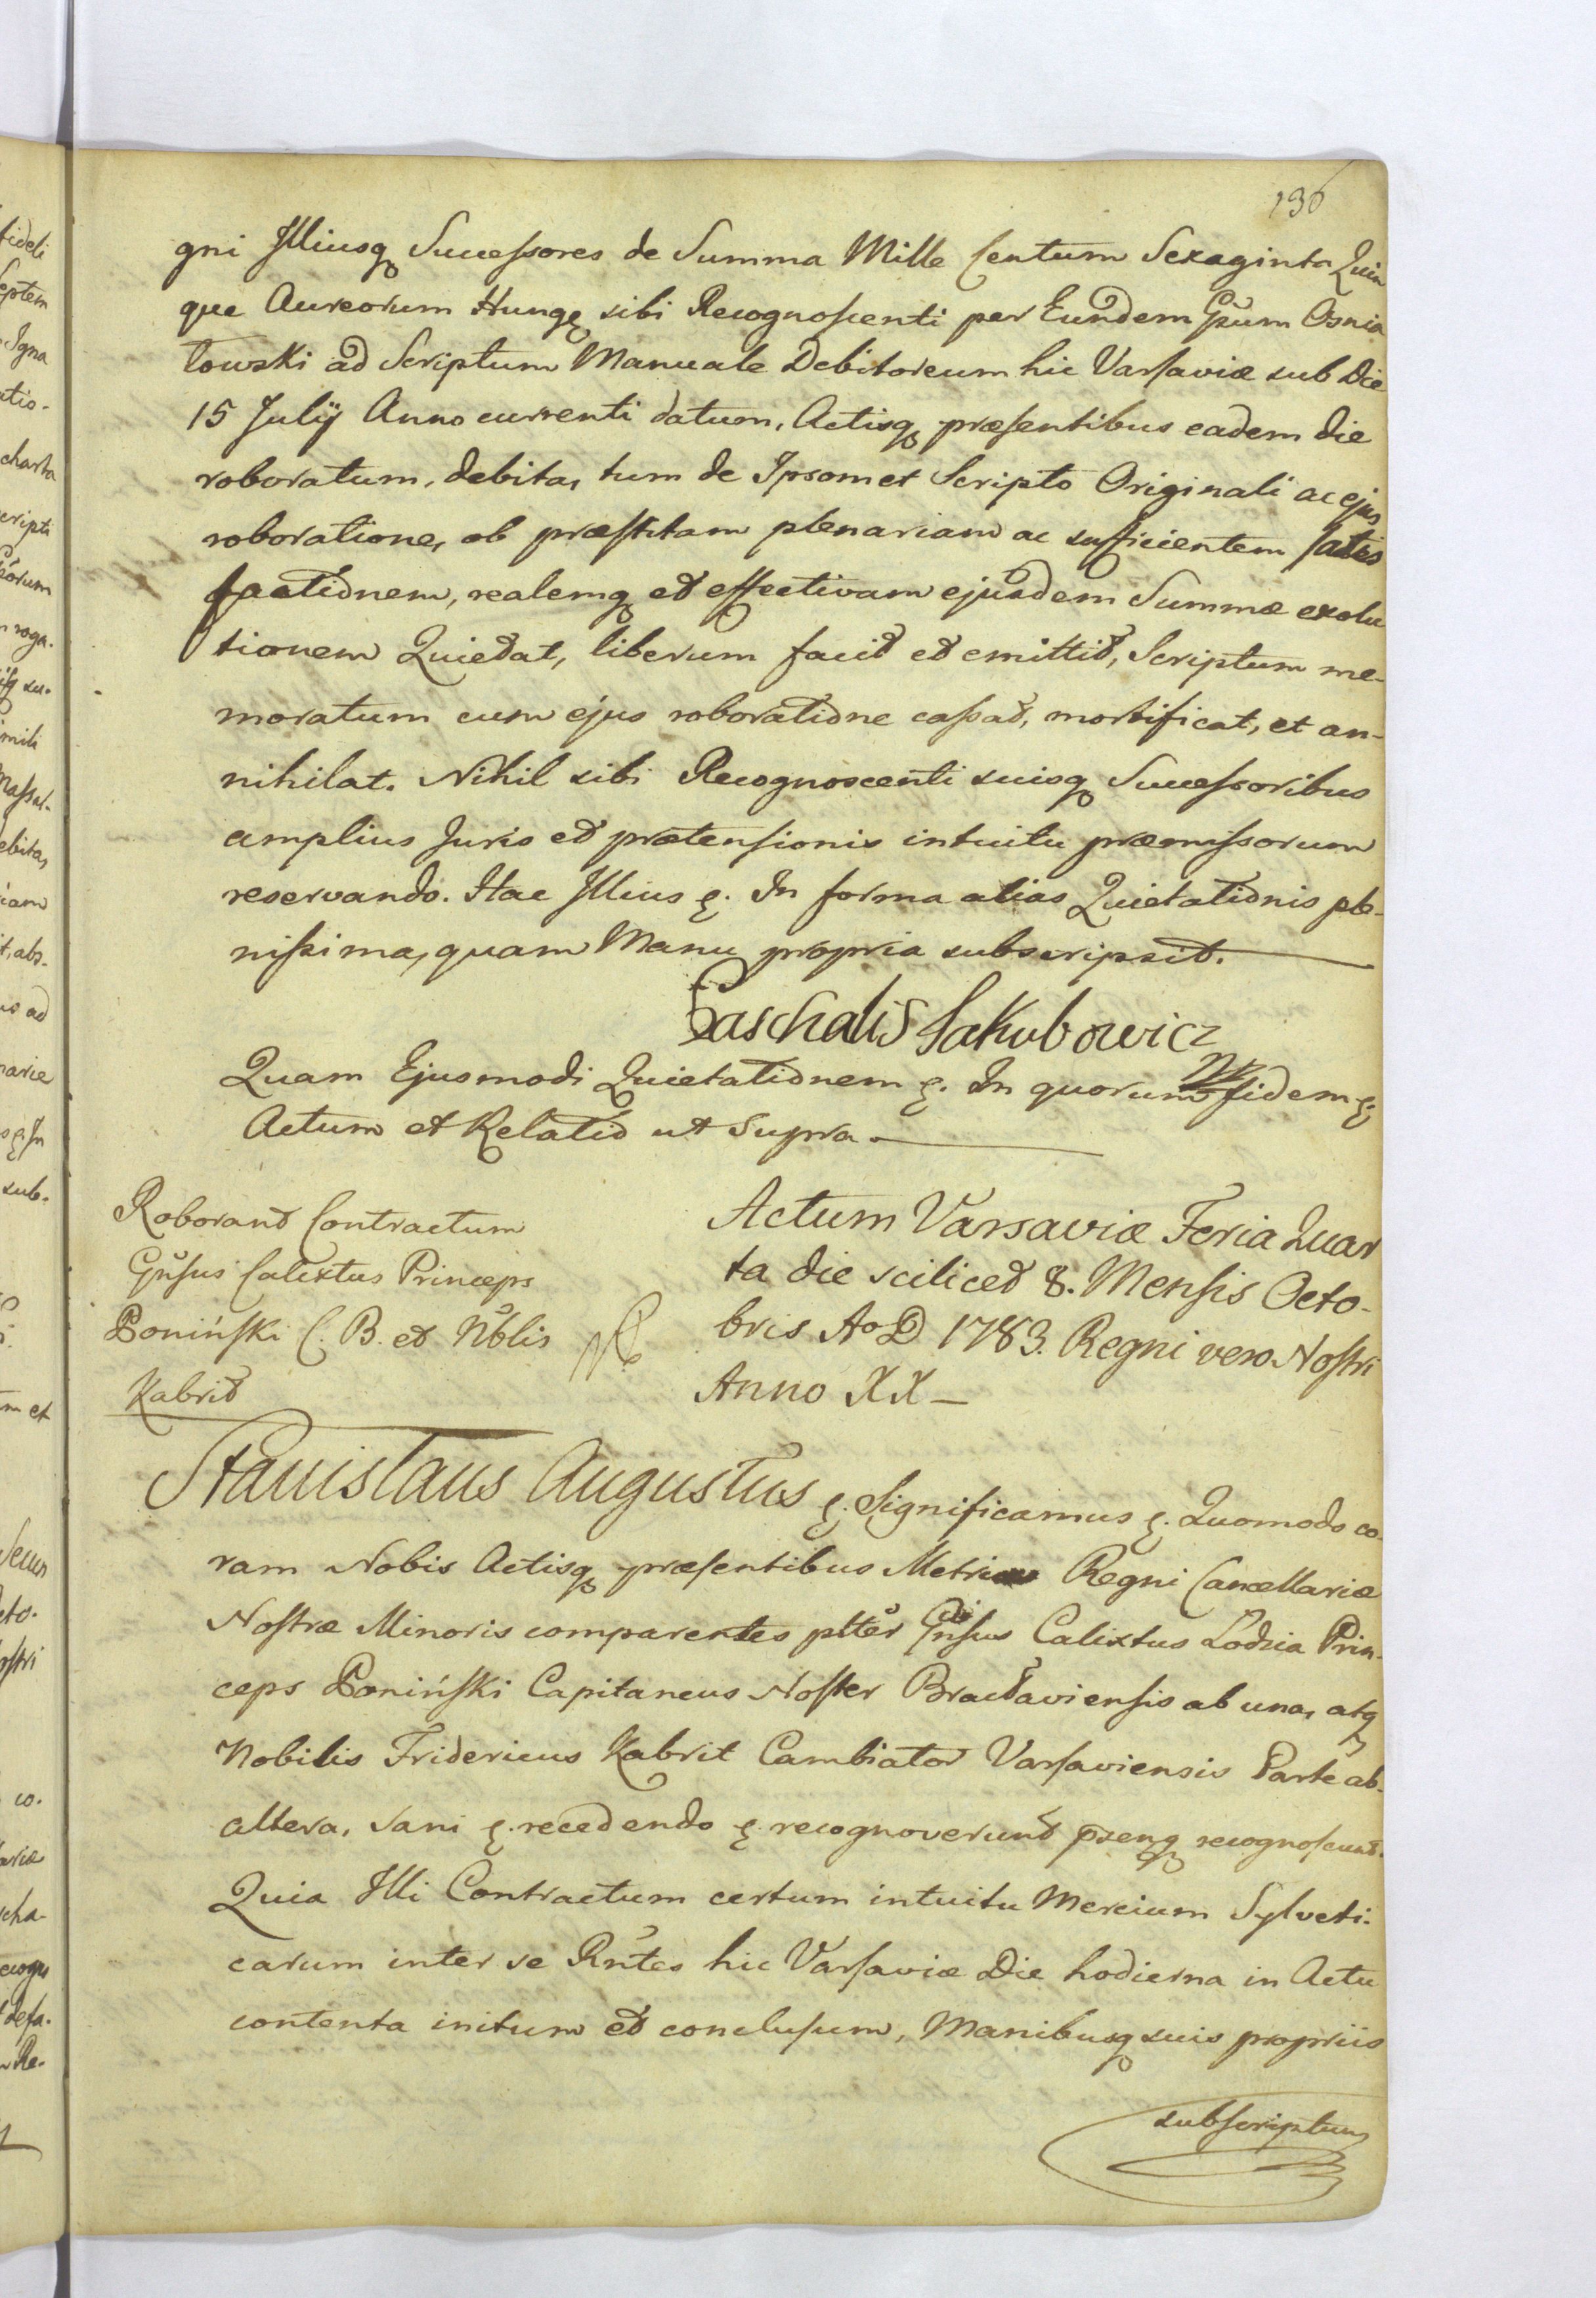 136
gni Illiusq Successores de Summa Mille Centum Sexaginta Quin
que Aureorum Hung sibi Recognoscenti per Eundem Gsum Osnia
łowski ad Scriptum Manuale Debitoreum hic Varsaviæ sub Die
15 Julij Anno currenti datum, Actisq præsentibus eadem die
roboratum, debita, tum de Ipsomet Scripto Originali ac ejus
roboratione, ob præstitam plenariam ac sufficientem satis
factionem, realemq et effectivam ejusdem Summæ exolu
tionem Quietat, liberum facit et emittit, Scriptum me-
moratum cum ejus roboratione cassat, mortificat, et an-
nihilat. Nihil sibi Recognoscenti suisq Successoribus
amplius Juris et prætensionis intuitu præmissorum
reservando. Itac Illius &. In forma alias Quietationis ple-
nissima, quam Manu propria subscripsit.
Paschalis Jakubowicz
Quam Ejusmodi Quietationem &. In quorum fidem &
Actum et Relatio ut supra.
Roborant Contractum
Gnsus Calixtus Princeps
Poniński C. B. et Nblis
Kabrit
Actum Varsaviæ Feria Quar
ta die scilicet 8. Mensis Octo-
bris Ao D 1783. Regni vero Nostri
Anno XX
Stanislaus Augustus &. Significamus &. Quomodo co-
ram Nobis Actisq præsentibus Metricæ Regni Cancellariæ
Nostræ Minoris comparentes ptter Gnsus Calixtus Łodzia Prin-
ceps Poniński Capitaneus Noster Bracłaviensis ab una, atq
Nobilis Fridericus Kabrit Cambiator Varsaviensis Parte ab-
altera, sani &. recedendo &. recognoverunt pzenq recognoscunt.
Quia Illi Contractum certum intuitu Mercium Sylvesti-
carum inter se Rntes hic Varsaviæ Die hodierna in Actu
contenta initum et conclusum, Manibusq suis propriis
subscriptum